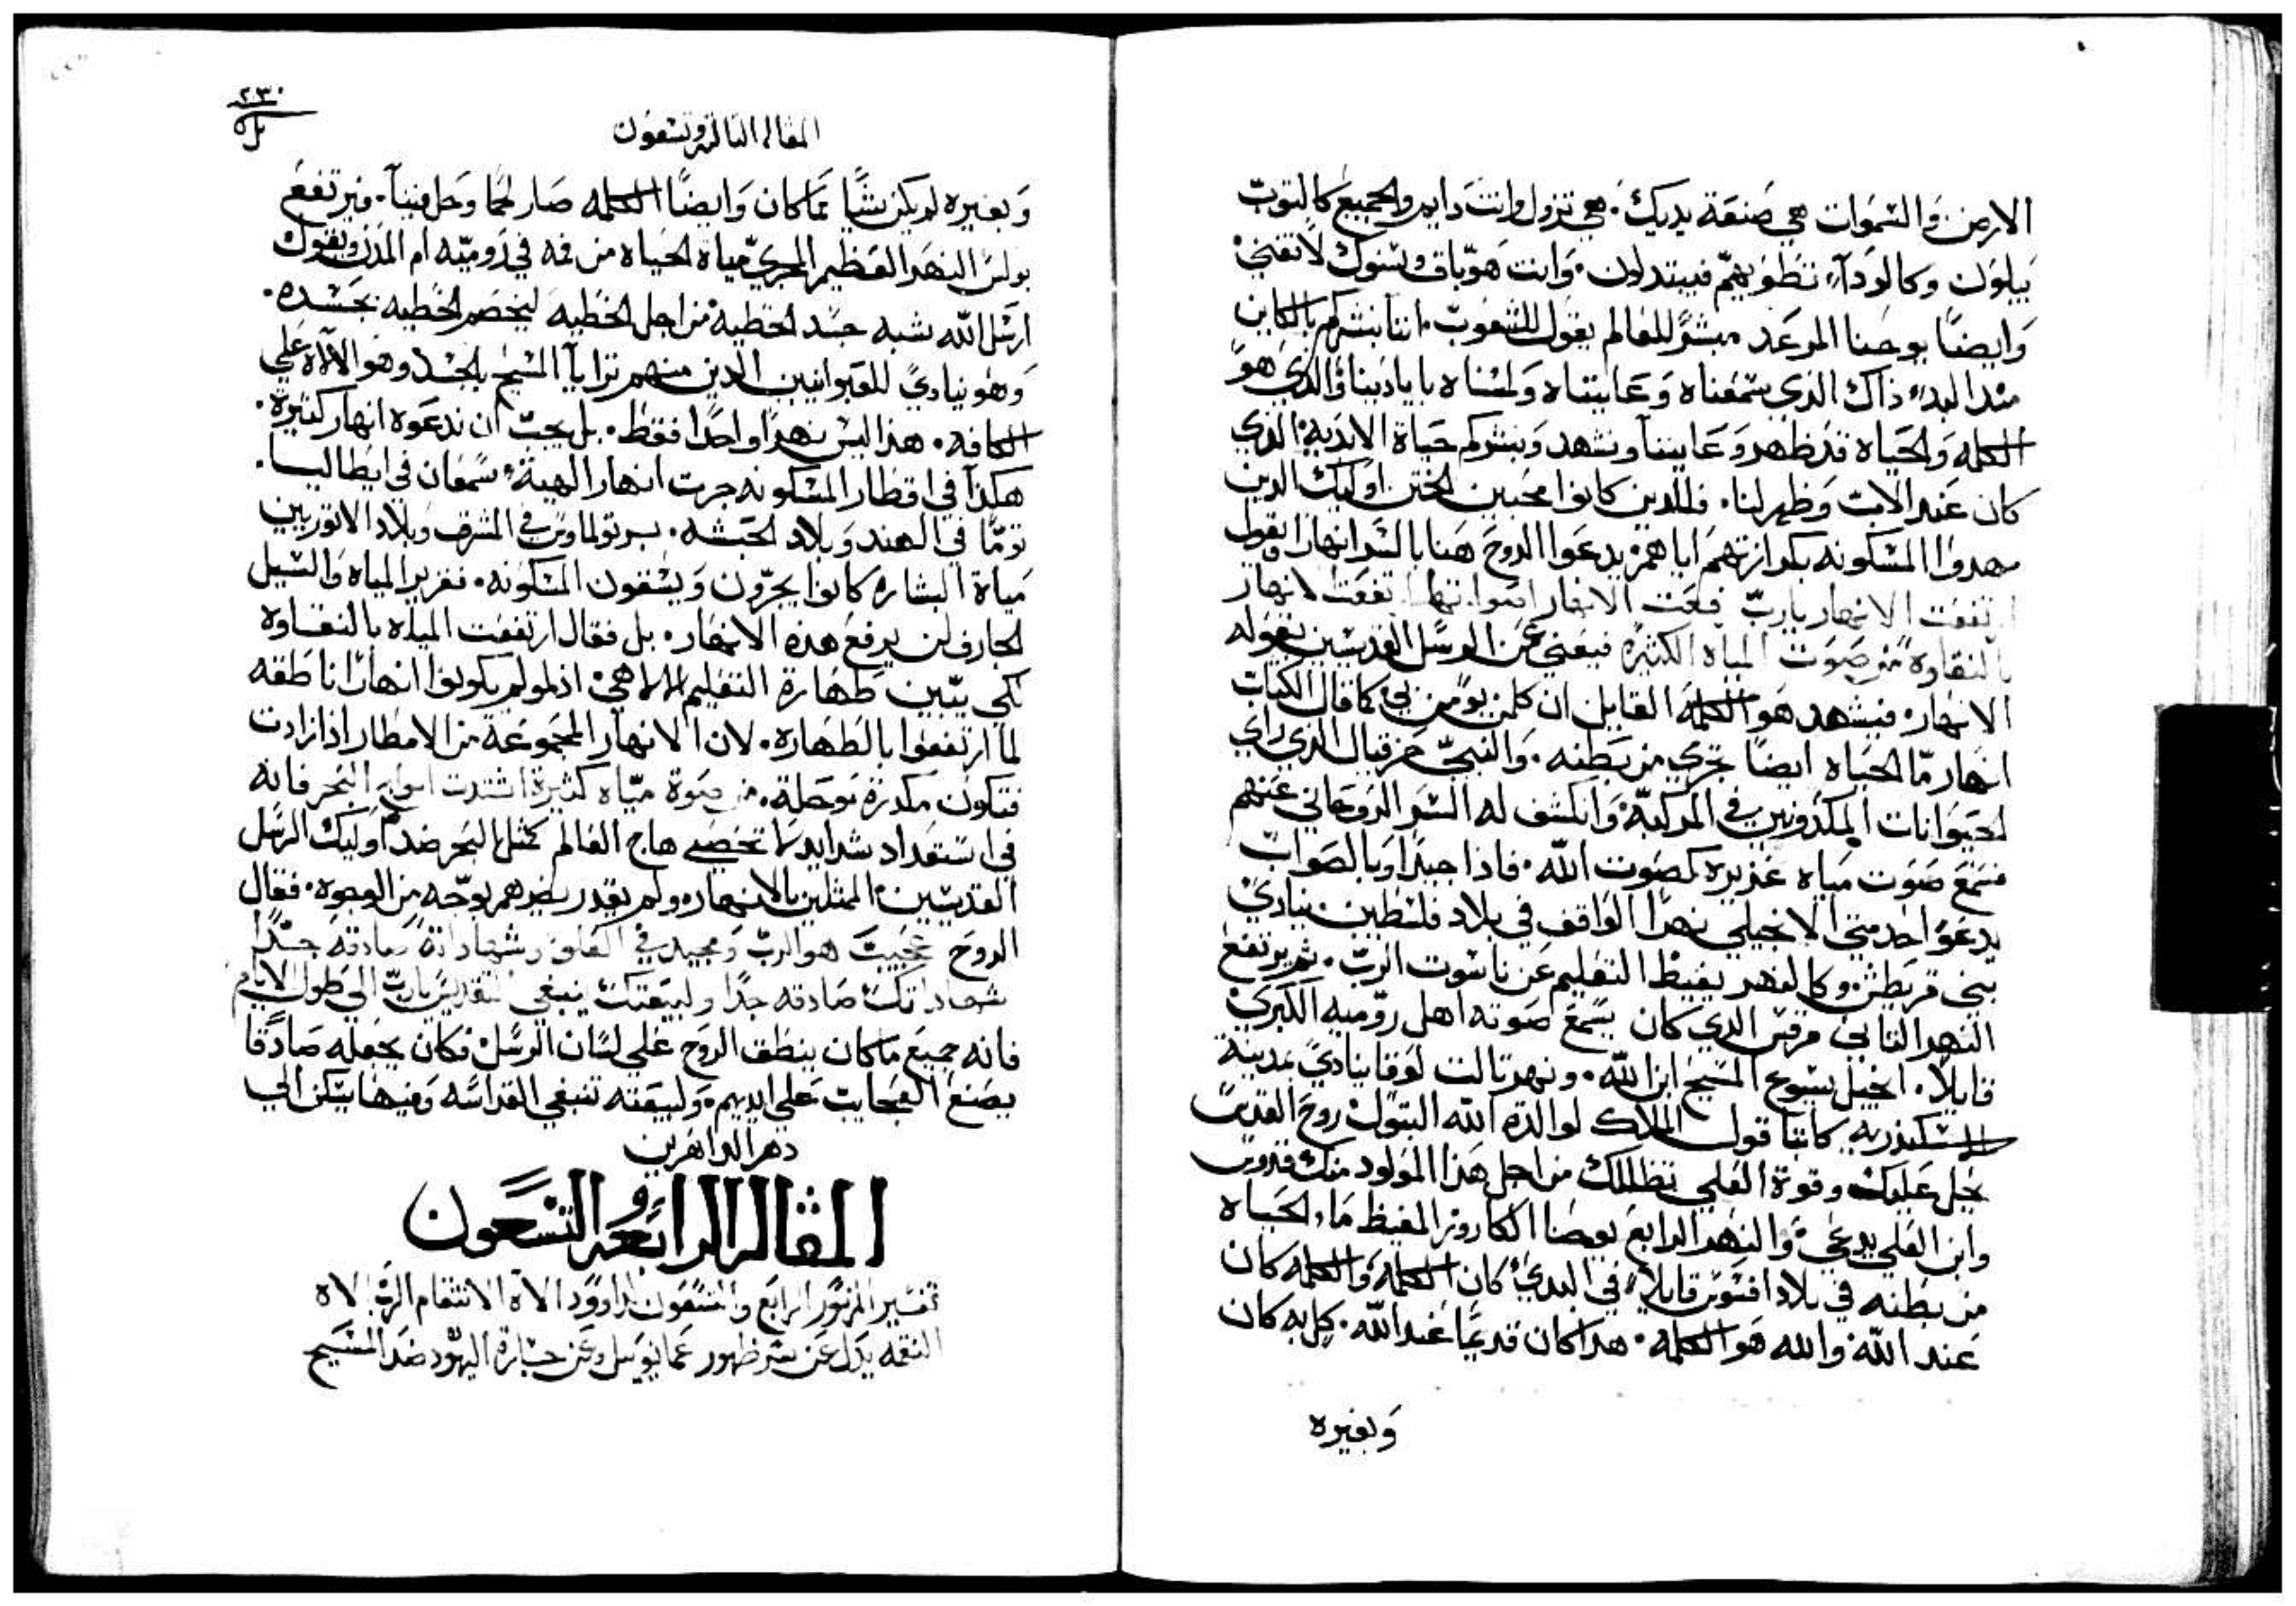 الارض والسموات هي صنعة يديك. هي تزول وانت دايم والجميع كالتوب
يبلون وكالردآء تطويهم فيبتدلون. وانت هو باق وسنوك لا تفني
وايضًا يوحنا المرعد مبشرًا للعالم يقول للشعوب. اننا نبشركم بالكاين
مند البدء ذاك الذي سمعناه وعايناه ولمسناه بايادينا والذي هو
الكلمه والحياه قد ظهر وعايننا ونشهد ونبشركم حياة الابدية الذي
كان عند الاب وظهر لنا. فالدين كانوا محبين الختن اوليك الدين
مهدوا المسكونه بكرازتهم اياهم يدعوا الروح هنا بالسر انهارا بقول
ارتفعت الانهار يارب رفعت الانهار اصواتها ترفعت الانهار
بالنقاوه من صوت المياه الكثيره فيعني عن الرسل القديسين بقوله
الانهار. فيشهد هو الكلمه القايل ان كلمن يومن بي كما قال الكتاب
انهار مآ الحياه ايضًا تجري من بطنه. والنبي حزقيال الذي راي
الحيوانات المكدونين في المركبة وانكشف له السر الروحاني عنهم
فسمع صوت مياه غزيره كصوت الله. فاذا جيدًا وبالصواب
يدعو احد متي الانجيلي نهرا الواقف في بلاد فلسطين ينادي
بني قريطش وكالنهر يفيظ التعليم عن ناسوت الرب. ثم يرتفع
النهر التاني مرقس الدي كان يسمع صوته اهل روميه الكبري
قايلًا. انجيل يسوع المسيح ابن الله. ونهر تالت لوقا ينادي بمدينة
الاسكندريه كاتبا قول الملاك لوالدة الله البتول روح القدس
يحل عليك وقوة العلي تظللك من اجل هذا المولود منك قدوس
وابن العلي يدعي والنهر الرابع يوحنا الكاروز المفيظ ماء الحياه
من بطنه في بلاد افسوس قايلًا في البدي كان الكلمه والكلمه كان
عند الله والله هو الكلمه. هدا كان قديمًا عند الله. كل به كان
وبغيره
٢٣٠
المقاله التالته وتسعون
وبغيره لم يكن شيًا مما كان وايضًا الكلمه صار لحمًا وحل فينآ. فيرتفع
بولس النهر العظيم المجري مياه الحياه من فمه في روميّه ام المدن ويقول
ارسل الله شبه جسد الخطيه من اجل الخطيه ليخصم الخطيه بجسده.
وهو ينادي للعبرانيين الدين منهم ترايآ المسيح بالجسد وهو الآلاه علي
الكافه. هذا ليس نهرًا واحدًا فقط. بل يجب ان ندعوه انهار كثيرة.
هكذا في اقطار المسكونه جرت انهار الهية سمعان في ايطاليا.
توما في الهند وبلاد الحبشه. برتولماوس في المشرق وبلاد الاتوريين
مياة البشاره كانوا يجرّون ويسقون المسكونه. فغزير المياه والسيل
الجارف لن يرفع هذه الانهار. بل فقال ارتفعت المياه بالنقاوه
لكي يتبين طهارة التعليم الالاهي. اذ لو لم يكونوا انهارًا ناطقه
لما ارتفعوا بالطهاره. لان الانهار المجموعة من الامطار اذا زادت
فتكون مكدرة موحلة. من صوة ميّاه كثيرة اشتدت امواج البحر فانه
في استعداد شدايد لا تحصي هاج العالم كمثل البحر ضد اوليك الرسل
القديسين الممثلين بالانهار ولم يقدر يضرهم بوجه من الوجوه. فقال
الروح عجيب هو الرب ومجيد في العلو وشهاداته صادقه جدًا
شهاداتك صادقه جدا ولبيعتك ينبغي التقديس يارب الي طول الايام
فانه جميع ما كان ينطق الروح علي لسان الرسل فكان يجعله صادقا
يصنع العجايب علي ايديهم. ولبيعته تنبغي القداسه وفيها يسكن الي
دهر الداهرين
المقاله الرابعه والتسعون
تفسير المزمور الرابع والتسعون لداوود الاه الانتقام الرب الاه
النقمه يدل عن سر ظهور عمانويل وعن جسارة اليهود ضد المسيح